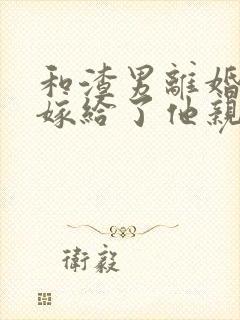 和渣男離婚
嫁給了他親
衛毅